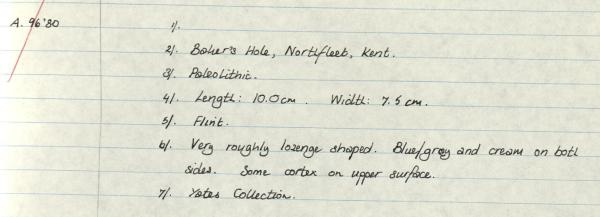 A. 96'80
1/.
2/. Baker's Hole, Northfleet, Kent.
3/. Paleolithic.
4/. Length: 10.0cm. Width: 7.5 cm.
5/. Flint.
6/. Very roughly lozenge shaped. Blue/gray and cream on both
sides. Some cortex on upper surface.
7/. Yates Collection.